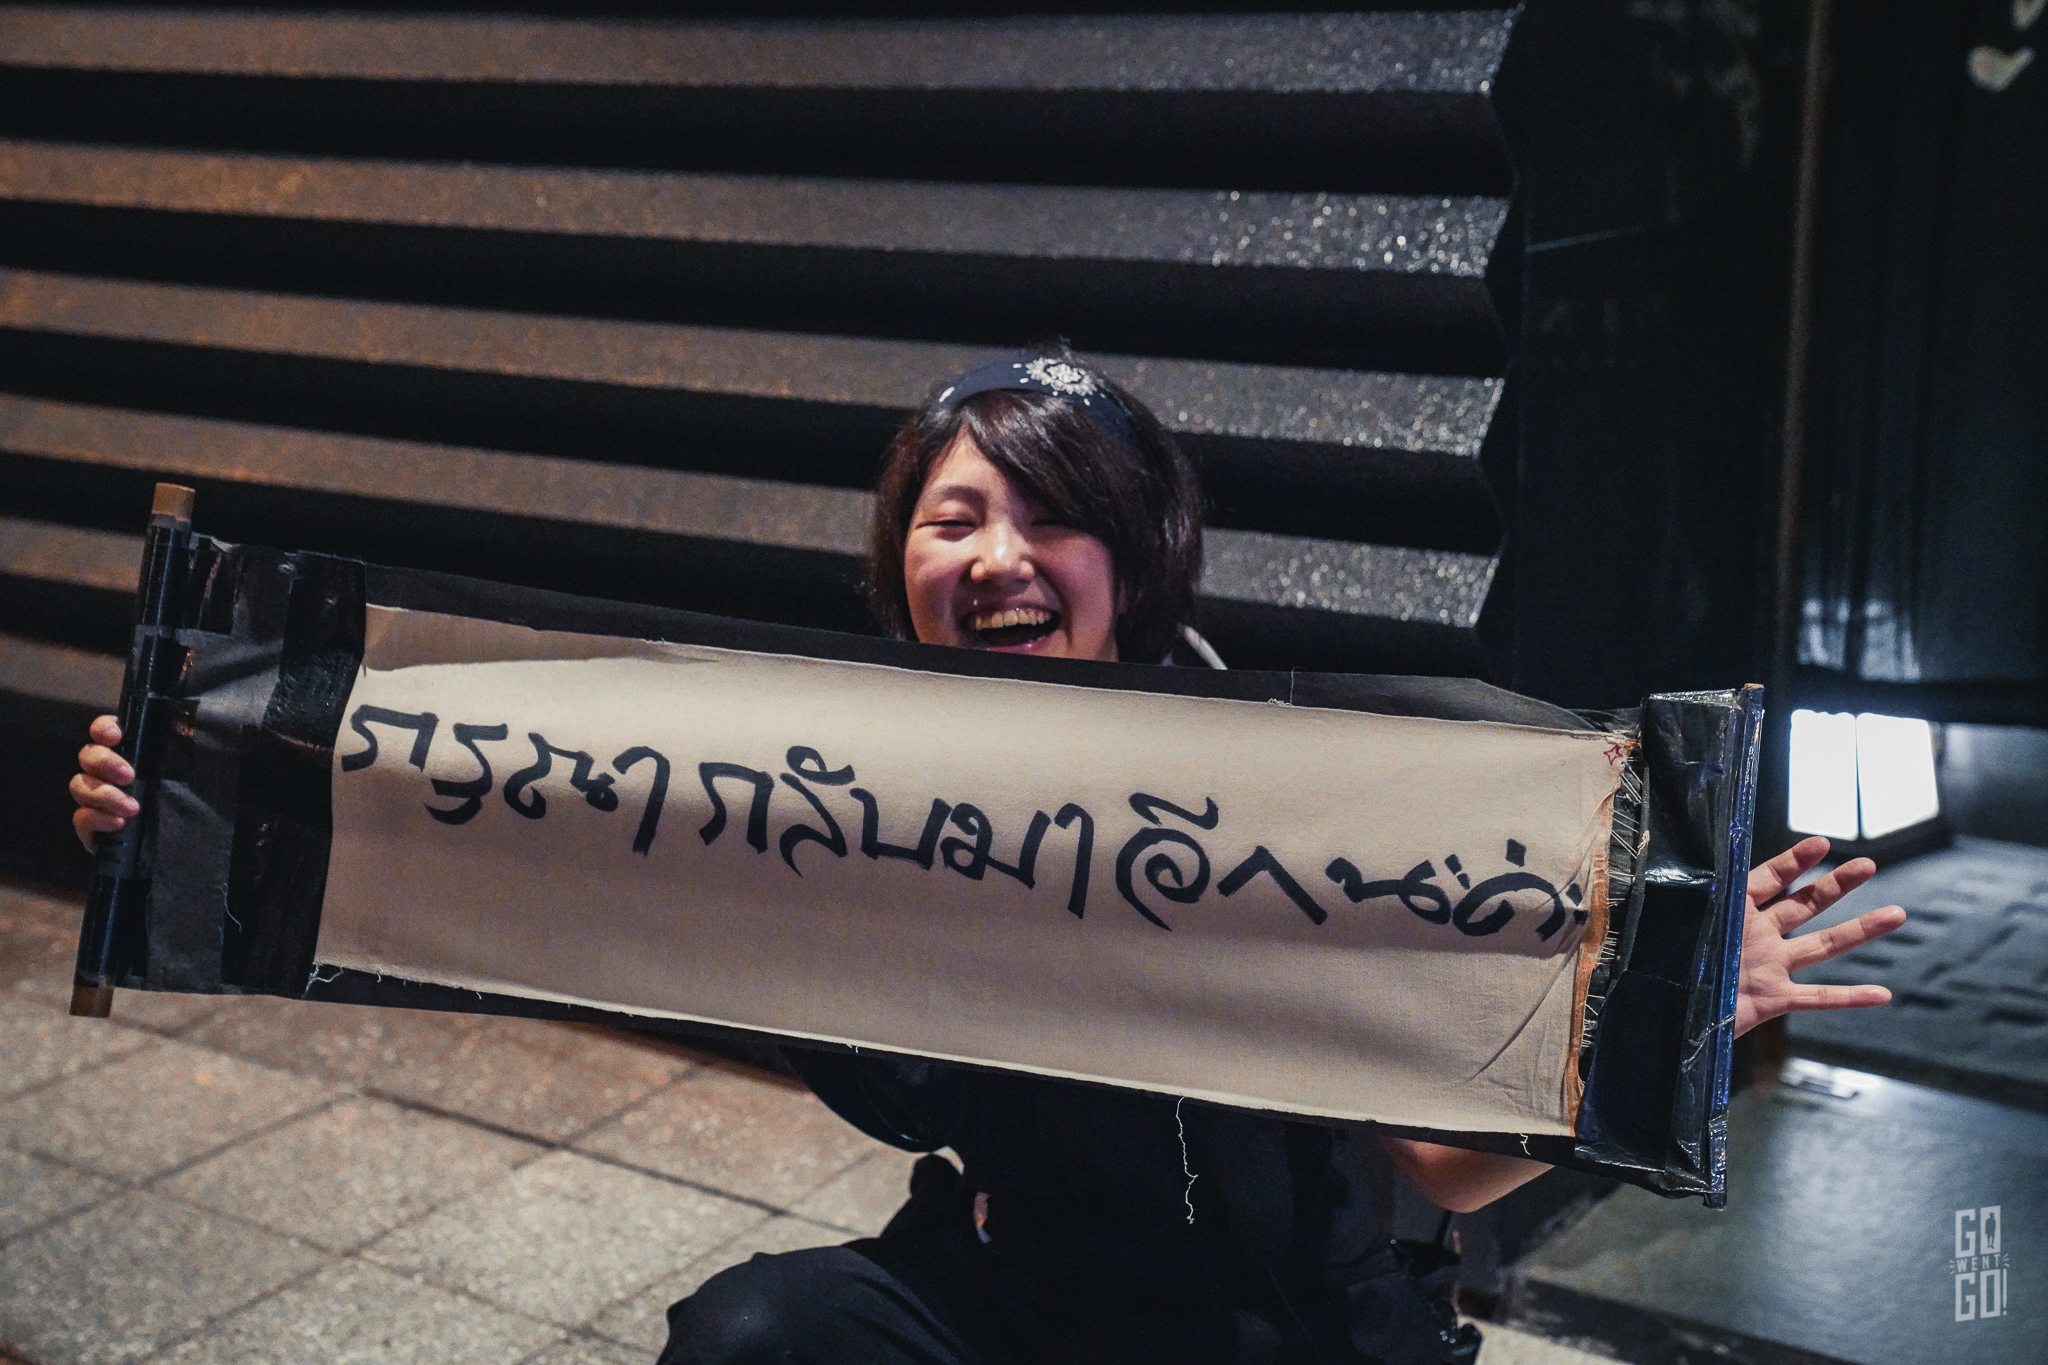 กรุณา กลับมา อีก นะค่ะ
GO
WENT
GO!